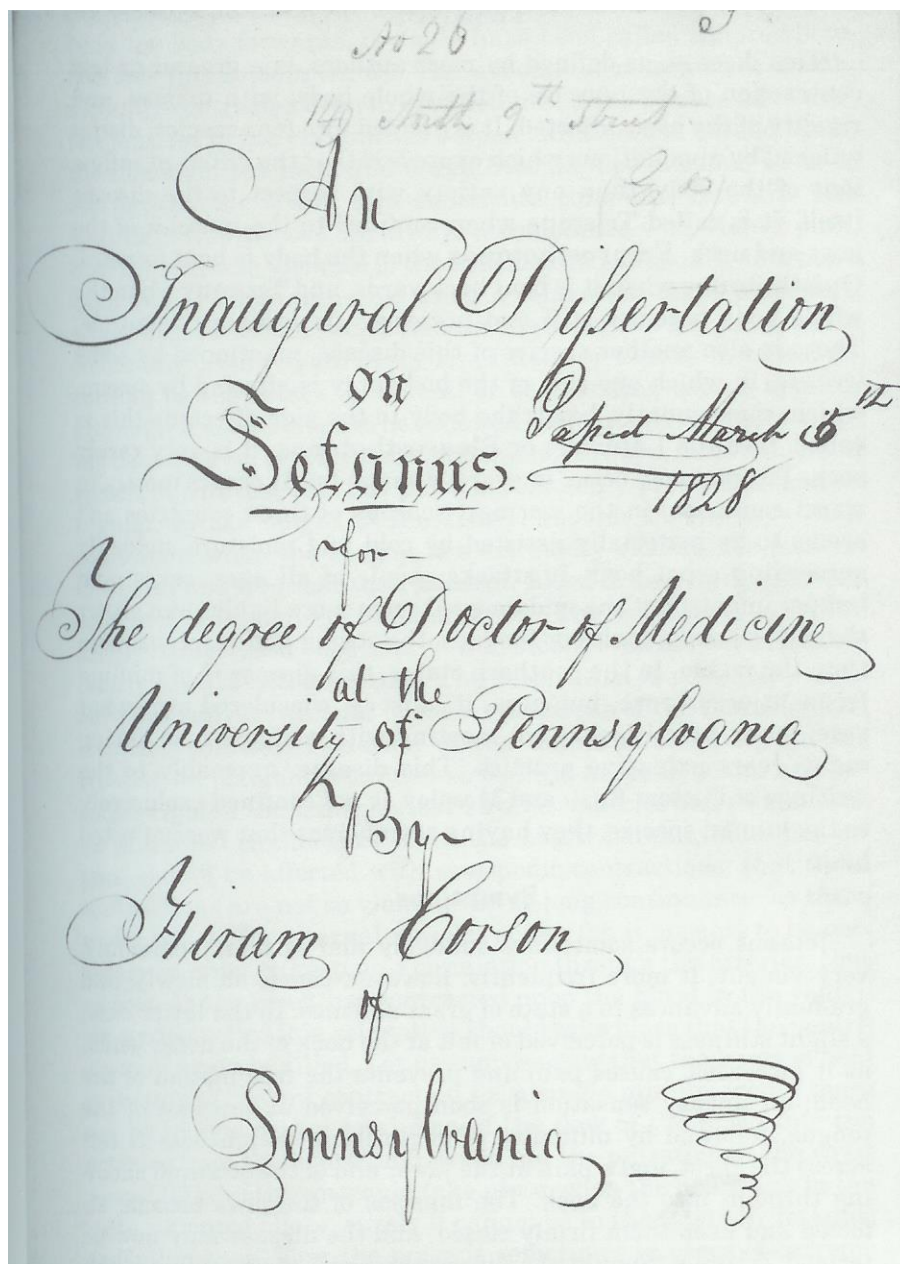 No 26
140 North 9th Street
An
Inaugural Dissertation
on
Tetanus.
Passed March 5th
1828
for
The degree of Doctor of Medicine
at the
University of Pennsylvania
By
Hiram Corson
of
Pennsylvania